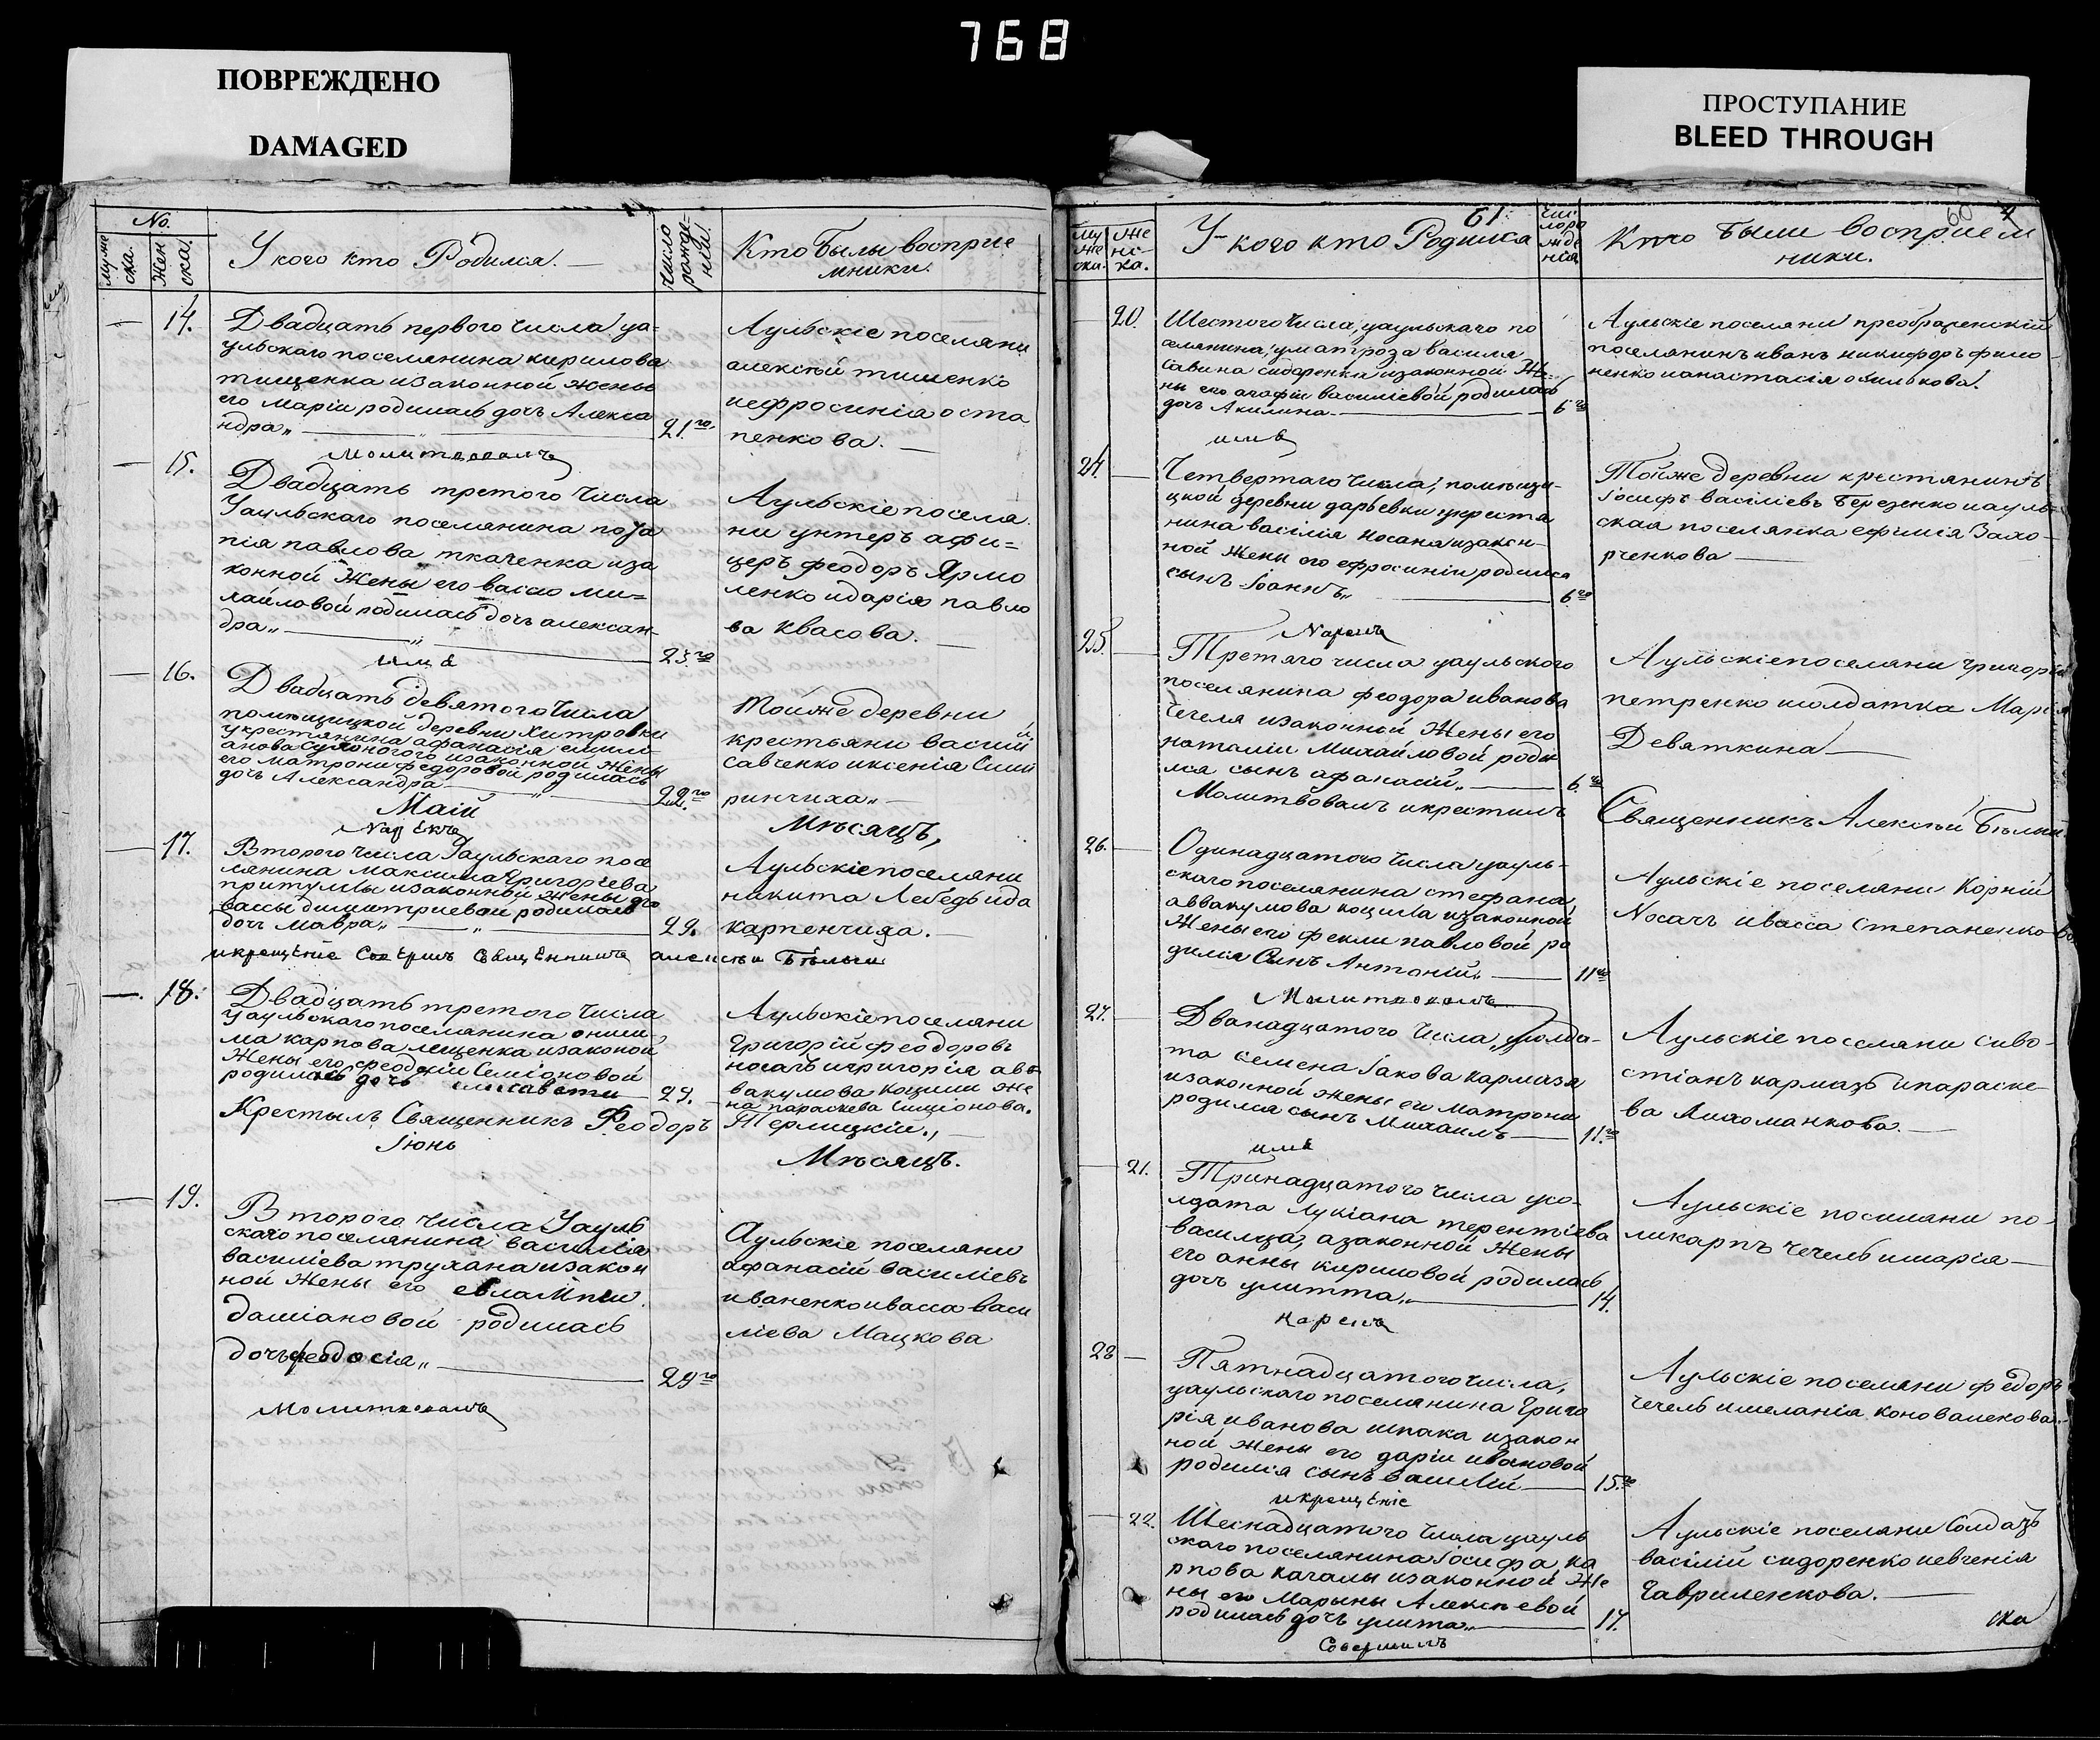 768
ПОВРЕЖДЕНО
DAMAGED
ПРОСТУПАНИЕ
BLEED THROUGH
No.
муже
ска.
Жен
ска.
У кого кто Родился.
число
рожде-
нія.
Кто Былы восприе
мники.
14.
Двадцать первого числа уа-
ульскаго поселянина кирилова
тищенка изаконной жены
его Маріи родилась дочь Алекса
ндра„
21.го
Аульскіе поселяни
алексѣй тишенко
иефросинія оста
пенкова.
Молитвовалъ
15.
Двадцать третого Числа
Уаульскаго поселянина пота
пія павлова ткаченка иза
конной Жены его васы ми=
хайловой родилась дочь алексан-
дра„
23.го
Аульскіе поселя
ни унтеръ афи=
церъ феодоръ Ярмо
ленко идарія павло
ва Квасова.
имя
16.
Двадцать девятого Числа
помѣщицкой деревни Хитровки
укрестянина афанасія емили-
анова Сухоногого изаконной Жены
его матрони федоровой родилась
дочь Александра
29.го
Тойже деревни
крестьяни васий
савченко иксенія Сини
ринчиха„
Маій
Мѣсяцъ,
Нарѣкъ
17.
Второго Числа Уаульскаго посе
лянина Максима Григоріева
притулы изаконной Жены его
васы димитриевой родилась
дочь Мавра„
29.
Аульскіе поселяни
никита Лебедь ида
карпенчиха.
икрещеніе Совершилъ Священникъ алексѣй Бѣлый
18.
Двадцать третого Числа
Уаульскаго поселянина ониси-
ма карпова лещенка изаконой
Жены его феодосіи Симіоновой
родилась дочь елисавети
29.
Аульскіе поселяни
Григорій феодоровъ
носачь игригорія авв
вакумова Коцили же
на параскева Симіонова.
Крестылъ Священникъ Феодоръ Терлицкій.,
Іюнь
Мѣсяцъ.
19.
Второго Числа Уауль
скаго поселянина василія
василіева трухана изакон
ной Жены его евлампіи
даміановой родилась
дочь феодосія„
29го
Аульскіе поселяни
афанасій василіевъ
иваненко ивасса васи
ліева Мацкова
Молитвовалъ
61
60
Му
Же
ска.
Же
нс-
ка.
У кого кто Родился
Чис
ло ро
жде
нія
Кто были восприем
ники.
20.
Шестого Числа, уаульскаго по
селянина, уматроза василя
Савина сидоренка изаконной Же
ны его агафіи василіевой родилась
дочь Акилина
6го
Аульскіе поселяни преображенскій
поселянинъ иванъ никифоръ фило
ненко ианастасія обилькова.
имя
24.
Четвертого Числа, помѣщи-
цкой деревни дарьевки укрестя
нина василія Носаня изакон-
ной Жены его ефросиніи родился
сынъ Іоаннъ„
6.го
Тойже деревни крестянинъ
Іосифъ василіевъ Березенко иауль
ская поселянка ефимія Захо-
рченкова
Нарекъ
25.
Третяго числа уаульского
поселянина феодора иванова
чечеля изаконной Жены его
наталіи Михайловой роди
лся сынъ афанасій„
6.го
Аульскіе поселяни григорій
петренко исолдатка Марія
Девяткина
Молитвовалъ икрестилъ Священникъ Алексѣй Бѣлый
26.
Одинадцатого Числа уауль-
скаго поселянина стефана
аввакумова коцила изаконной
Жены его феклы павловой ро
дился Сынъ Антоній„
11го
Аульскіе поселяни Корній
Носачъ ивасса Степаненкова
Молитвовалъ
27.
Дванадцатого Числа, усолда-
та Семена Іакова Кармаза
изаконной жены его матрони
родился сынъ Михаилъ
11.го
Аульскіе поселяни сиво-
стіанъ кармазъ ипараске-
ва Лихоманкова.
имя
21.
Тринадцатого Числа усо-
лдата Лукіана терентіева
василца, азаконной Жены
его анны кириловой родилась
дочь улитта„
14.
Аульскіе поселяни по-
ликарпъ чечель имарія
нарекъ
28
Пятнадцатого числа,
уаульскаго поселянина Григо
рія иванова шпака изакон
ной Жены его даріи ивановой
родился сынъ василій
15.го
Аульскіе поселяни федоръ
чечель имеланія коновалекова.
икрещеніе
22.
Шеснадцатого Числа уауль
скаго поселянина Іосифа, ка
рпова качалы изаконной Же
ны его Марыны Алексѣевой
родилась дочь улита„
17.
Аульскіе поселяни Солдатъ
василій сидоренко иевгенія
Гавриленкова.
Совершилъ
ска